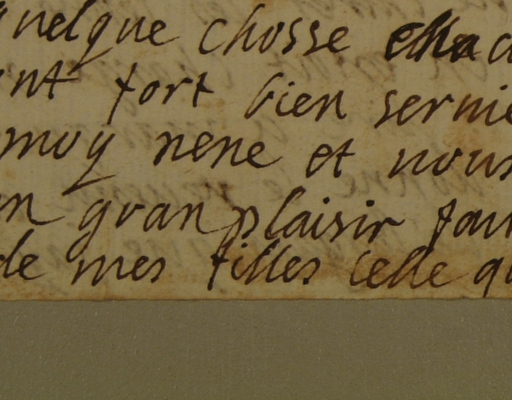 quelque chosse elle a
nt fort bien servie
moy nene et nous
n gran plaisir fau
de mes filles celle qu